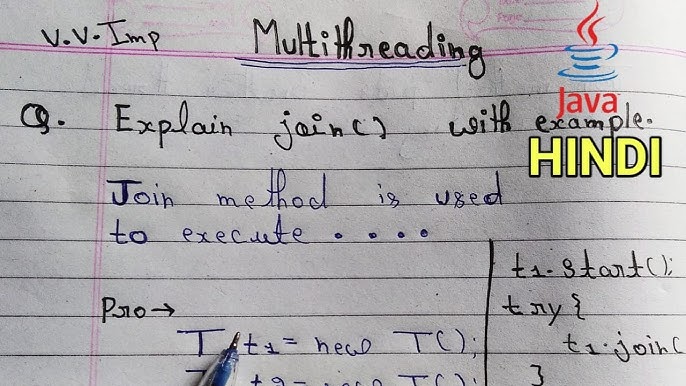 V.V. Imp
Multithreading
Java
HINDI
Q. Explain join() with example.
Join method is used
to execute . . . .
Pro→
T t1 = new T();
t2 = new T();
t1.start();
try {
t1.join(
}